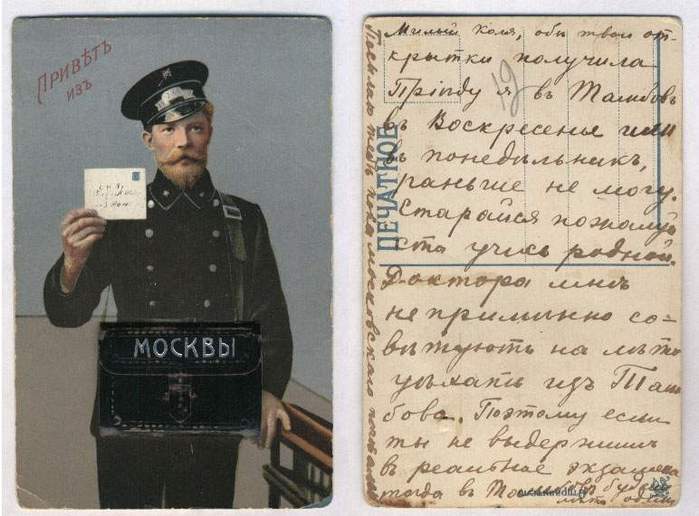 ПРИВѢТЪ
ИЗЪ
МОСКВЫ
Милый Коля, обѣ твои от-
крытки получила
Пріѣду я въ Тамбовъ
въ Воскресенье или
въ понедѣльникъ,
раньше не могу.
Старайся пожалуй
ста учись родной.
Доктора мнѣ
не примѣнно со-
вѣтуютъ на лѣто
уѣхать изъ Там
бова. Поэтому если
ты не выдержишь
въ реальное экзамена
тогда въ Тамбовѣ будешь
лѣто одинъ
Посылаю тебѣ пока московскаго
ПЕЧАТНОЕ
19